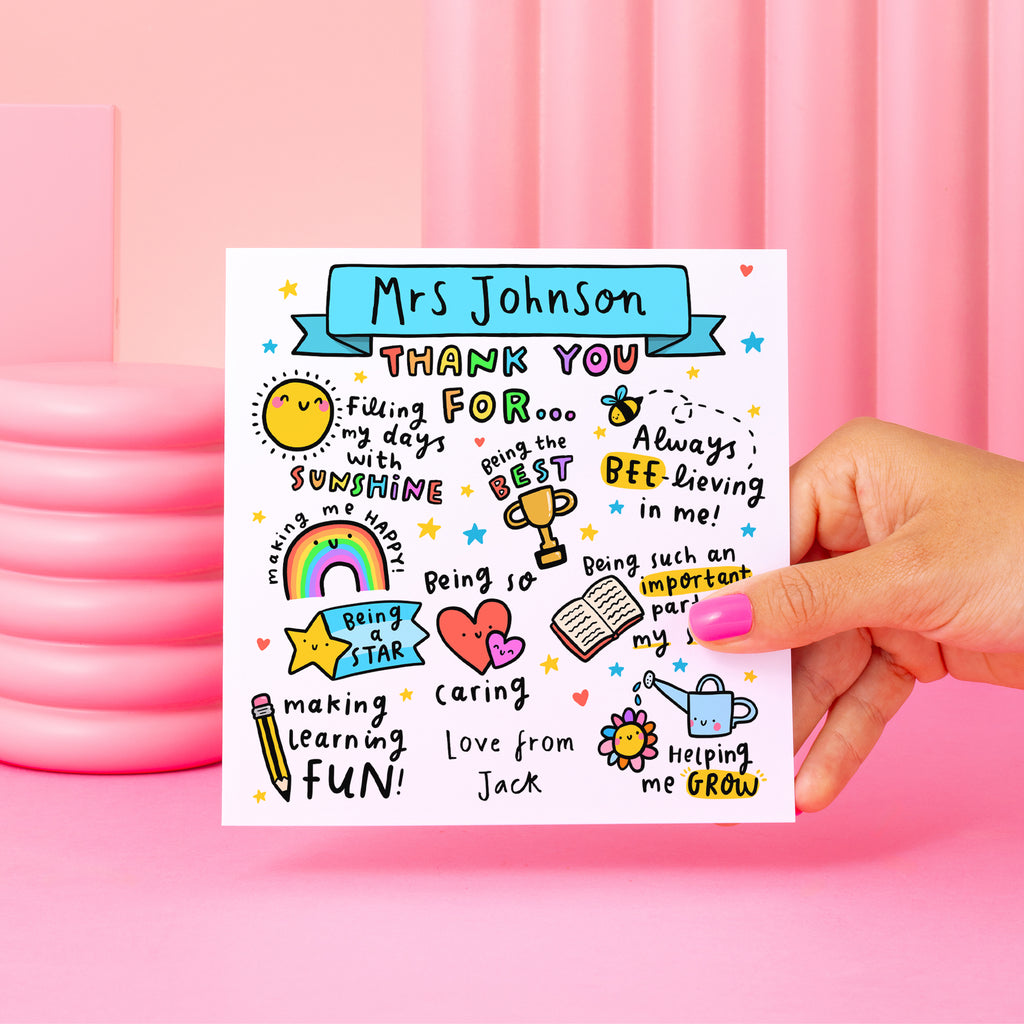 Mrs Johnson
THANK YOU
FOR...
Filling
my days
with
SUNSHINE
Being the
BEST
Always
BEE-lieving
in me!
making me HAPPY!
Being so
caring
Being such an
important
my
Being
a
STAR
making
learning
FUN!
Love from
Jack
Helping
me GROW